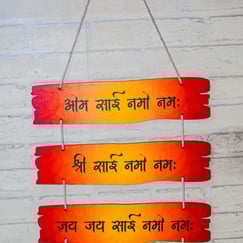 ओम साईं नमो नमः
श्री साईं नमो नमः
जय जय साईं नमो नमः